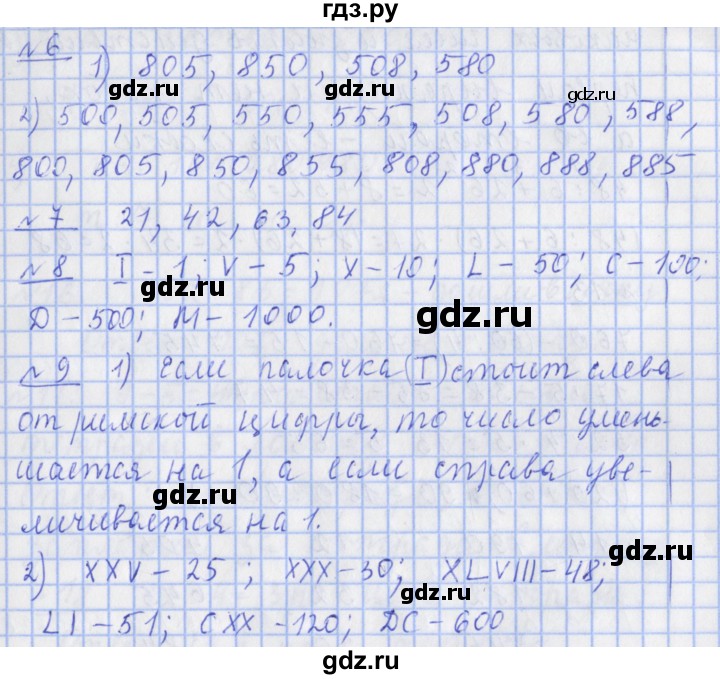 гдз.ру
№6 1) 805, 850, 508, 580
gdz.ru gdz.ru gdz.ru
2) 500, 505, 550, 555, 508, 580, 588,
800, 805, 850, 855, 808, 880, 888, 885
gdz.ru gdz.ru
№7 21, 42, 63, 84
№8 I-1; V-5; X-10; L-50; C-100;
D-500; M-1000.
gdz.ru
№9 1) Если палочка (I) стоит слева
от римской цифры, то число умень-
шается на 1, а если справа уве-
gdz.ru
личивается на 1.
2) XXV-25; XXX-30; XLVIII-48;
gdz.ru gdz.ru
LI-51; CXX-120; DC-600
gdz.ru gdz.ru